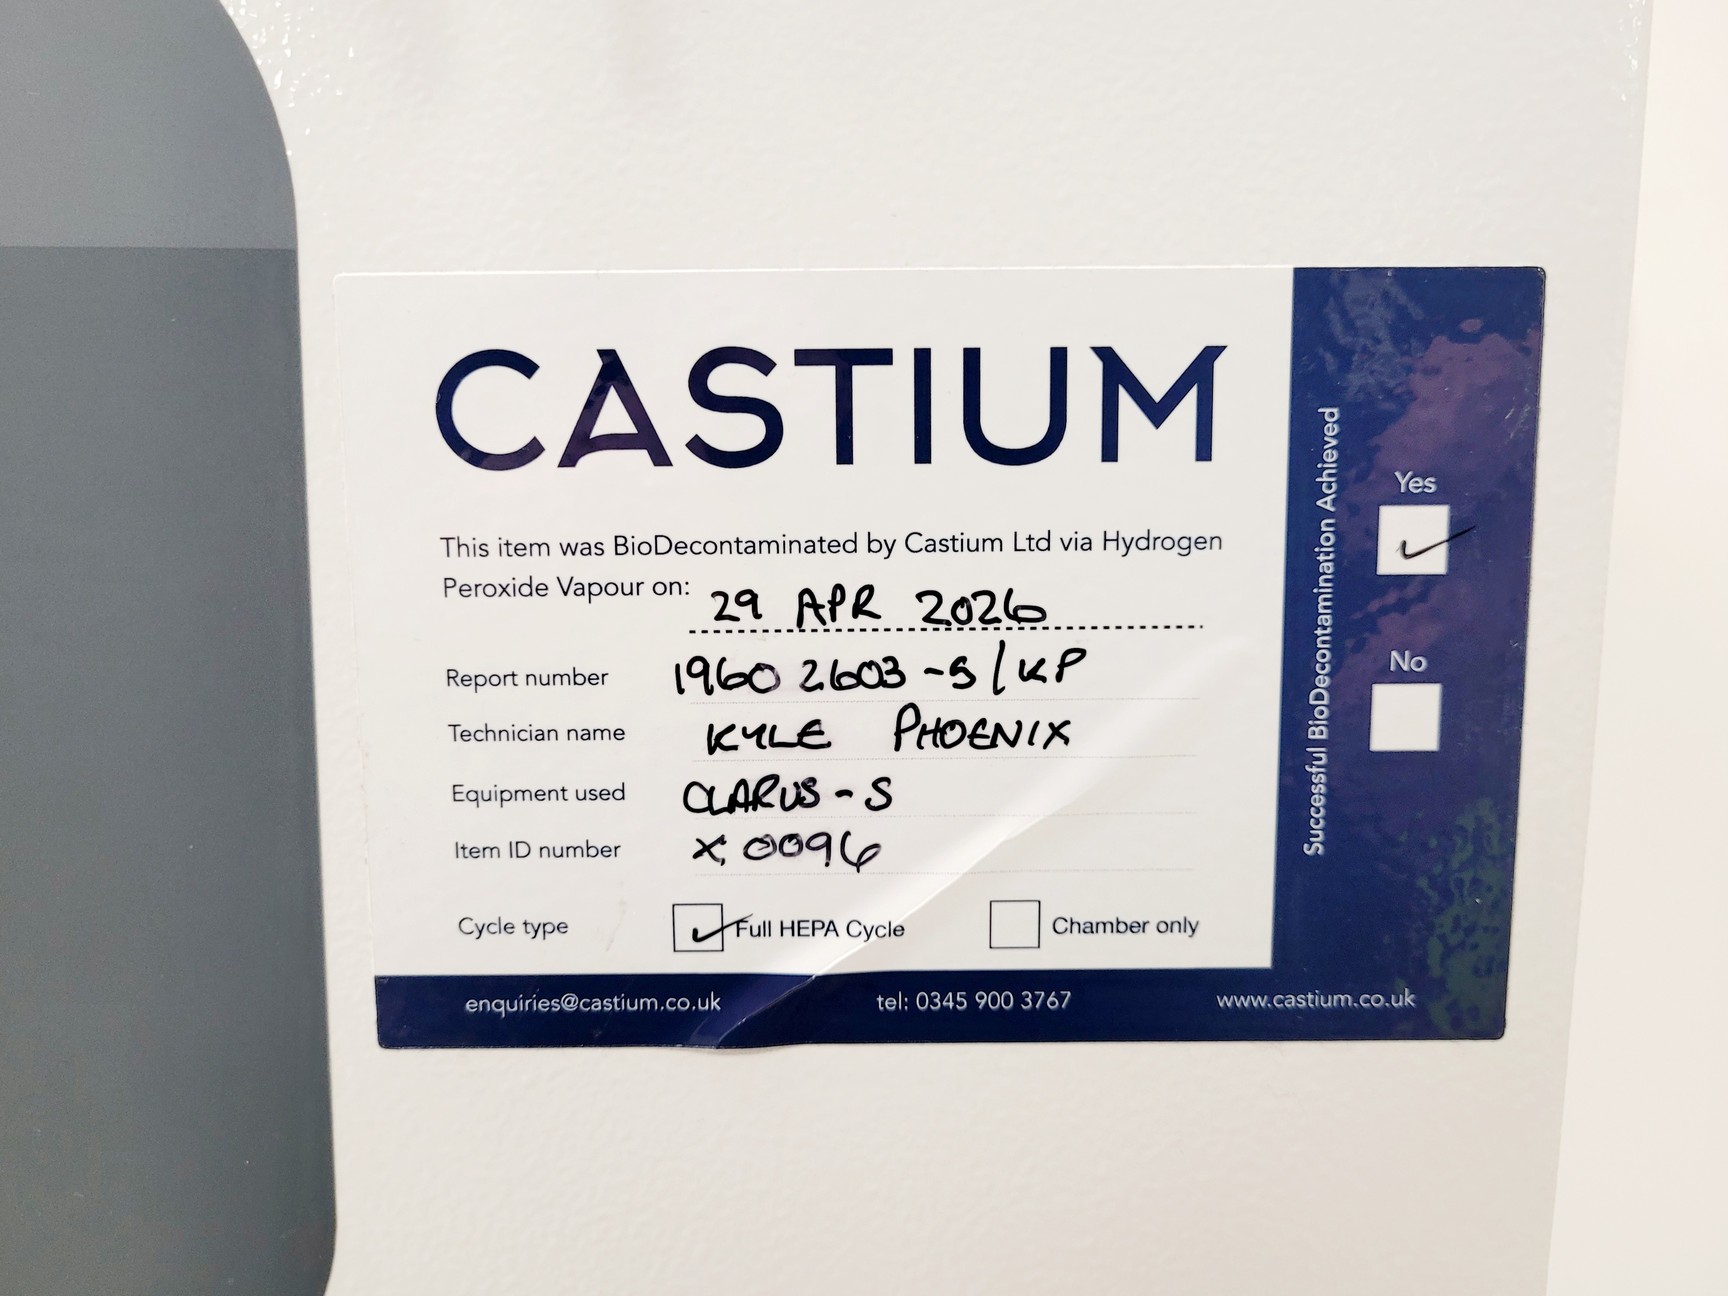 CASTIUM
This item was BioDecontaminated by Castium Ltd via Hydrogen
Peroxide Vapour on: 29 APR 2026
Report number 1960 2603-S/KP
Technician name KYLE PHOENIX
Equipment used CLARUS-S
Item ID number X0096
Cycle type Full HEPA Cycle Chamber only
enquiries@castium.co.uk tel: 0345 900 3767 www.castium.co.uk
Successful BioDecontamination Achieved
Yes
No